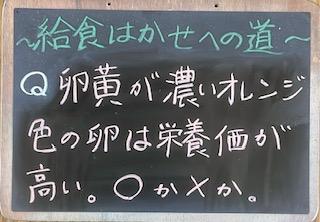 ～給食はかせへの道～
Q 卵黄が濃いオレンジ
色の卵は栄養価が
高い。○か×か。